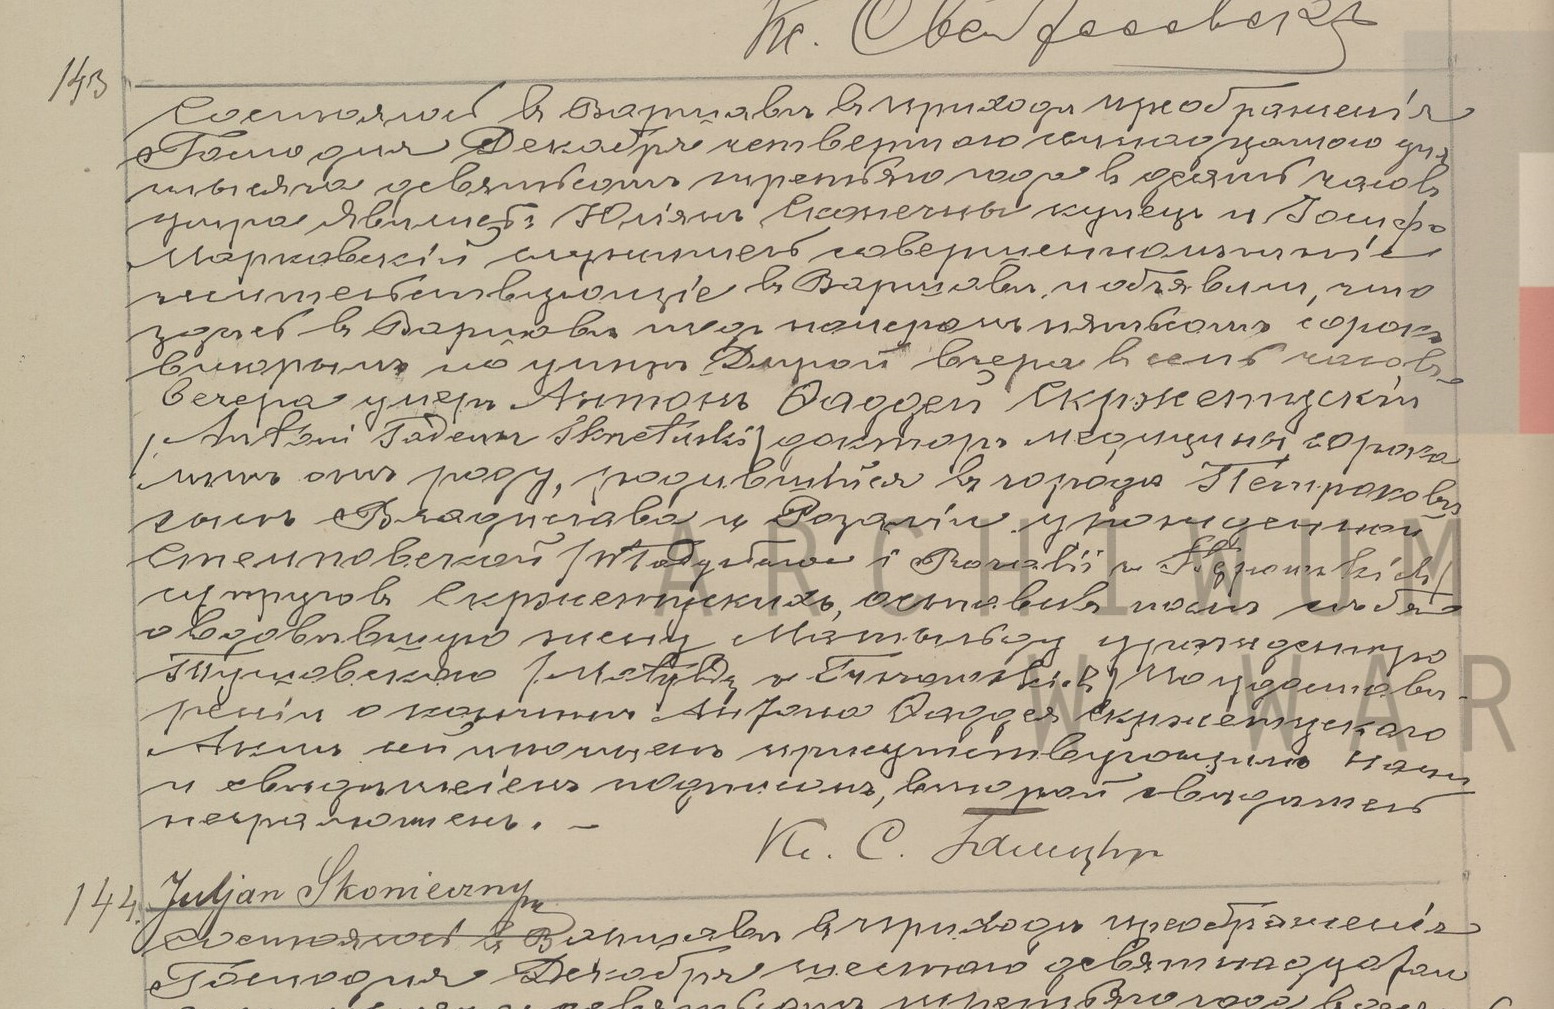 Кс. 
143
Состоялось въ Варшавѣ въ приходѣ преображенія
Господня Декабря четвертаго семнадцатаго дня
тысяча девятьсотъ третьяго года въ десять часовъ
утра Явились: Юліянъ Сконечны купецъ и Іосифъ
Марковскій служитель совершеннолѣтніе
жительствующіе въ Варшавѣ, и объявили, что
здѣсь въ Варшавѣ подъ номеромъ пятьсотъ сорокъ
вторымъ по улицѣ Дикой вчера въ семь часовъ
вечера умеръ Антонъ Фаддей Скржетускій
/Antoni Tadeusz Skrzetuski/ докторъ медицины, сорока
лѣтъ отъ роду, родившійся въ городѣ Петроковѣ
сынъ Владислава и Розаліи урожденной
Стемповской /Władysława i Rozalii z Stępowskich/
супруговъ Скржетускихъ, оставивъ послѣ себя
овдовѣвшую жену Матыльду урожденную
/Matyldę z / По удостовѣ-
реніи о кончинѣ Антона Фаддея Скржетускаго
Актъ сей прочтенъ присутствующимъ нами
и свидѣтелемъ подписанъ, второй свидѣтель
неграмотенъ. —
Кс. С. 
Juljan Skonieczny
144.
Состоялось въ Варшавѣ въ приходѣ преображенія
Господня Декабря шестаго девятнадцатаго
девятьсотъ третьяго года
ARCHIWUM
W WAR